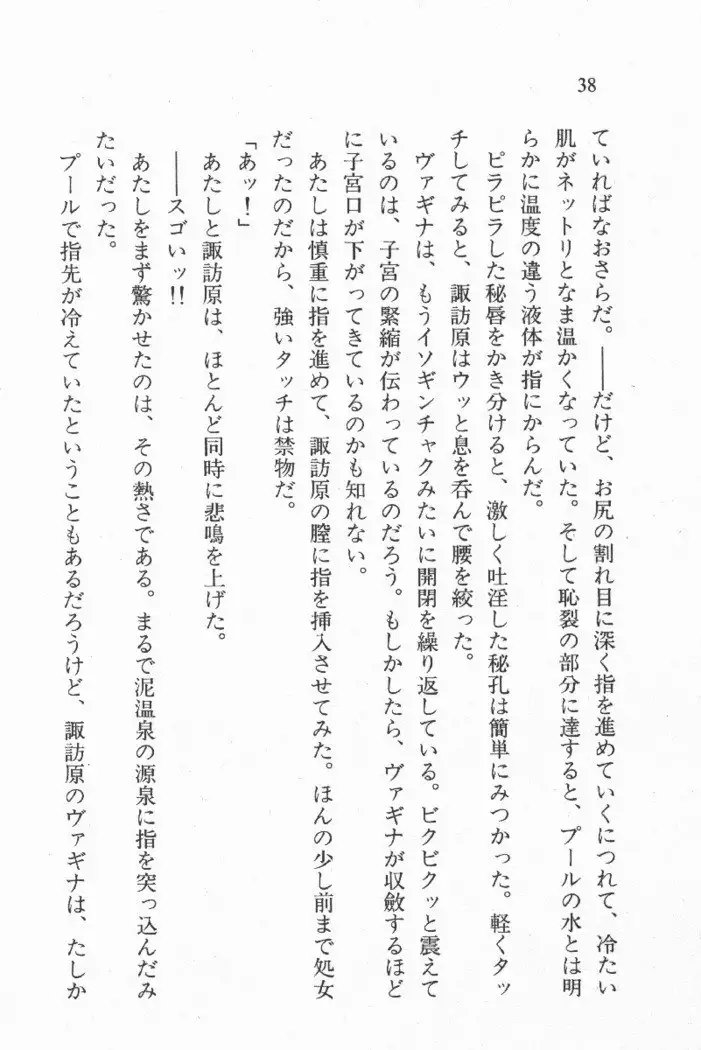 38
ていればなおさらだ。――だけど、お尻の割れ目に深く指を進めていくにつれて、冷たい
肌がネットリとなま温かくなっていた。そして恥裂の部分に達すると、プールの水とは明
らかに温度の違う液体が指にからんだ。
ピラピラした秘唇をかき分けると、激しく吐淫した秘孔は簡単にみつかった。軽くタッ
チしてみると、諏訪原はウッと息を呑んで腰を絞った。
ヴァギナは、もうイソギンチャクみたいに開閉を繰り返している。ビクビクッと震えて
いるのは、子宮の緊縮が伝わっているのだろう。もしかしたら、ヴァギナが収斂するほど
に子宮口が下がってきているのかも知れない。
あたしは慎重に指を進めて、諏訪原の膣に指を挿入させてみた。ほんの少し前まで処女
だったのだから、強いタッチは禁物だ。
「あッ！」
あたしと諏訪原は、ほとんど同時に悲鳴を上げた。
――スゴいッ!!
あたしをまず驚かせたのは、その熱さである。まるで泥温泉の源泉に指を突っ込んだみ
たいだった。
プールで指先が冷えていたということもあるだろうけど、諏訪原のヴァギナは、たしか